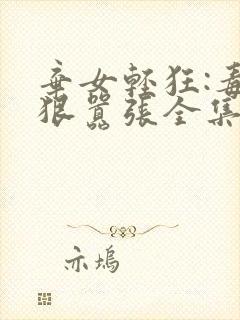 棄女輕狂:毒
狠囂張全集
亦塢